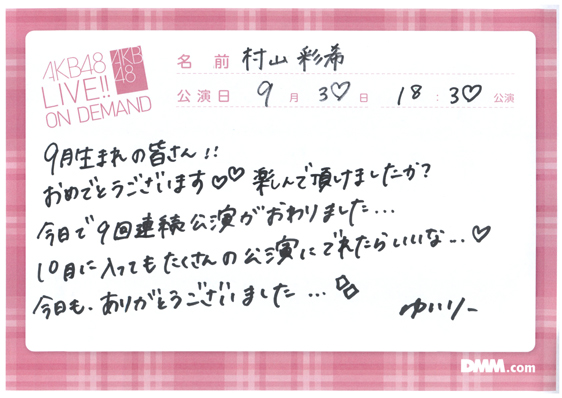 AKB48
LIVE!!
ON DEMAND
AKB
48
名前 村山彩希
公演日 9月30日 18:30公演
9月生まれの皆さん!!
おめでとうございます♡♡ 楽しんで頂けましたか?
今日で9回連続公演がおわりました...
10月に入ってもたくさんの公演にでれたらいいな...♡
今日も、ありがとうございました...
ゆいりー
DMM.com